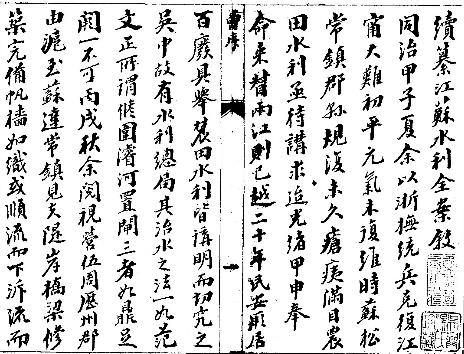 續纂江蘇水利全案敘
同治甲子夏余以浙撫統兵克復江
甯大難初平元氣未復維時蘇松
常鎮郡縣規復未久瘡痍滿目農
田水利亟待講求迨光緒甲申奉
命來督兩江則已越二十年民安所居
曾序
一
百廢具舉農田水利皆講明而切究之
吳中故有水利總局其治水之法一如范
文正所謂修圍濬河置閘三者如鼎足
闕一不可丙戌秋余閱視營伍周歷州郡
由滬至蘇達常鎮見夫隄岸橋梁修
築完備帆檣如織或順流而下泝流而